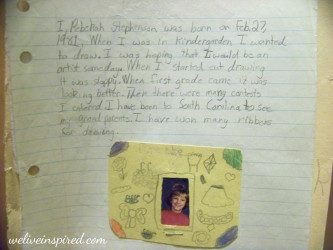 I, Rebekah Stephenson was born on Feb. 27,
1981. When I was in Kindergarden I wanted
to draw. I was hoping that I would be an
artist someday. When I started out drawing
It was sloppy. When first grade came it was
looking better. Then there were many contests
I entered. I have been to South Carolina to see
my grand parents. I have won many ribbons
for drawing.
weliveinspired.com